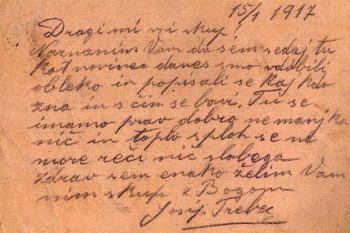 15/1 1917
Dragi mi vsi skup
Naznanim Vam da sem sedaj tu
kot novinec danes smo vdobili
obleko in popisali se kaj kdo
zna in s čim se bavi. Tu se
imamo prav dobro ne manjka
nič in toplo sploh se ne
more reči nič slabega
zdrav sem enako želim Vam
vsim skup z Bogom
Josip Trebec